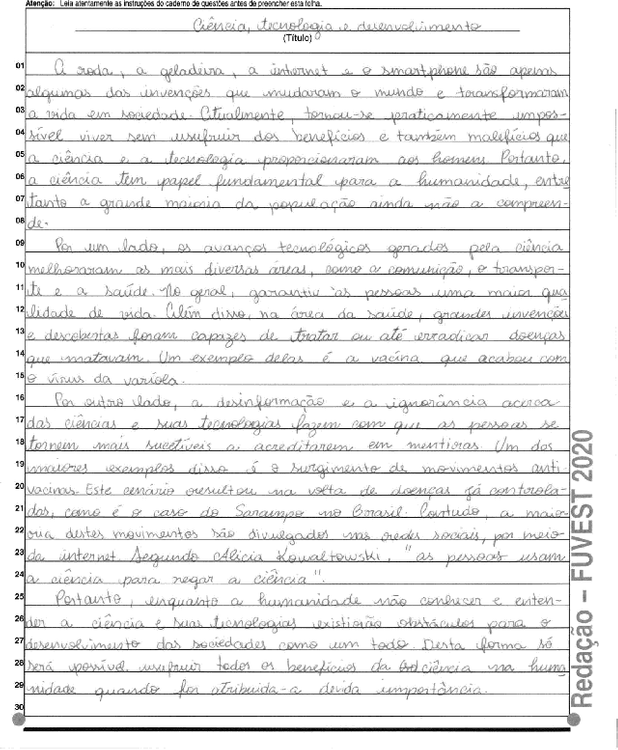 Atenção: Leia atentamente as instruções do caderno de questões antes de preencher esta folha.
Ciência, tecnologia e desenvolvimento
(Título)
01 A roda, a geladeira, a internet e o smartphone são apenas
02 algumas das invenções que mudaram o mundo e transformaram
03 a vida em sociedade. Atualmente, tornou-se praticamente impos-
04 sível viver sem usufruir dos benefícios e também malefícios que
05 a ciência e a tecnologia proporcionaram aos homens. Portanto,
06 a ciência tem papel fundamental para a humanidade, entre
07 tanto a grande maioria da população ainda não a compreen-
08 de.
09 Por um lado, os avanços tecnológicos gerados pela ciência
10 melhoraram as mais diversas áreas, como a comunição, o transpor-
11 te e a saúde. No geral, garantiu às pessoas uma maior qua
12 lidade de vida. Além disso, na área da saúde, grandes invenções
13 e descobertas foram capazes de tratar ou até erradicar doenças
14 que matavam. Um exemplo delas é a vacina que acabou com
15 o vírus da varíola.
16 Por outro lado, a desinformação e a ignorância acerca
17 das ciências e suas tecnologias fazem com que as pessoas se
18 tornem mais sucetíveis a acreditarem em mentiras. Um dos
19 maiores exemplos disso é o surgimento de movimentos anti-
20 vacinas. Este cenário resultou na volta de doenças já controla-
21 das, como é o caso do Sarampo no Brasil. Contudo, a maio
22 ria destes movimentos são divulgados nas redes sociais, por meio
23 da internet. Segundo Alicia Kowaltowski, "as pessoas usam
24 a ciência para negar a ciência".
25 Portanto, enquanto a humanidade não conhecer e enten-
26 der a ciência e suas tecnologias existirão obstáculos para o
27 desenvolvimento das sociedades como um todo. Desta forma só
28 será possível usufruir todos os benefícios da ciência na huma
29 nidade quando for atribuida-a devida importância.
30
Redação – FUVEST 2020